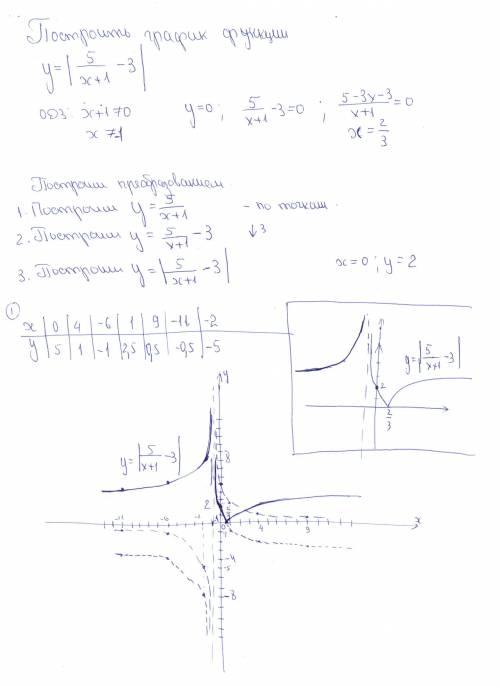 Построить график функции
y = | 5/(x+1) - 3 |
ОДЗ: x+1≠0    y=0 ; 5/(x+1) - 3 = 0 ; (5-3x-3)/(x+1) = 0
x ≠ -1    x = 2/3
Построим преобразованием
1. Построим y = 5/(x+1)    - по точкам.
2. Построим y = 5/(x+1) - 3    ↓3
3. Построим y = | 5/(x+1) - 3 |    x=0 ; y=2
①
x | 0 | 4 | -6 | 1 | 9 | -11 | -2
y | 5 | 1 | -1 | 2,5 | 0,5 | -0,5 | -5
y = | 5/(x+1) - 3 |
2
2/3
y
y = | 5/(x+1) - 3 |
8
2
-11 -6 -1 0 4 9 x
-4
-5
-8